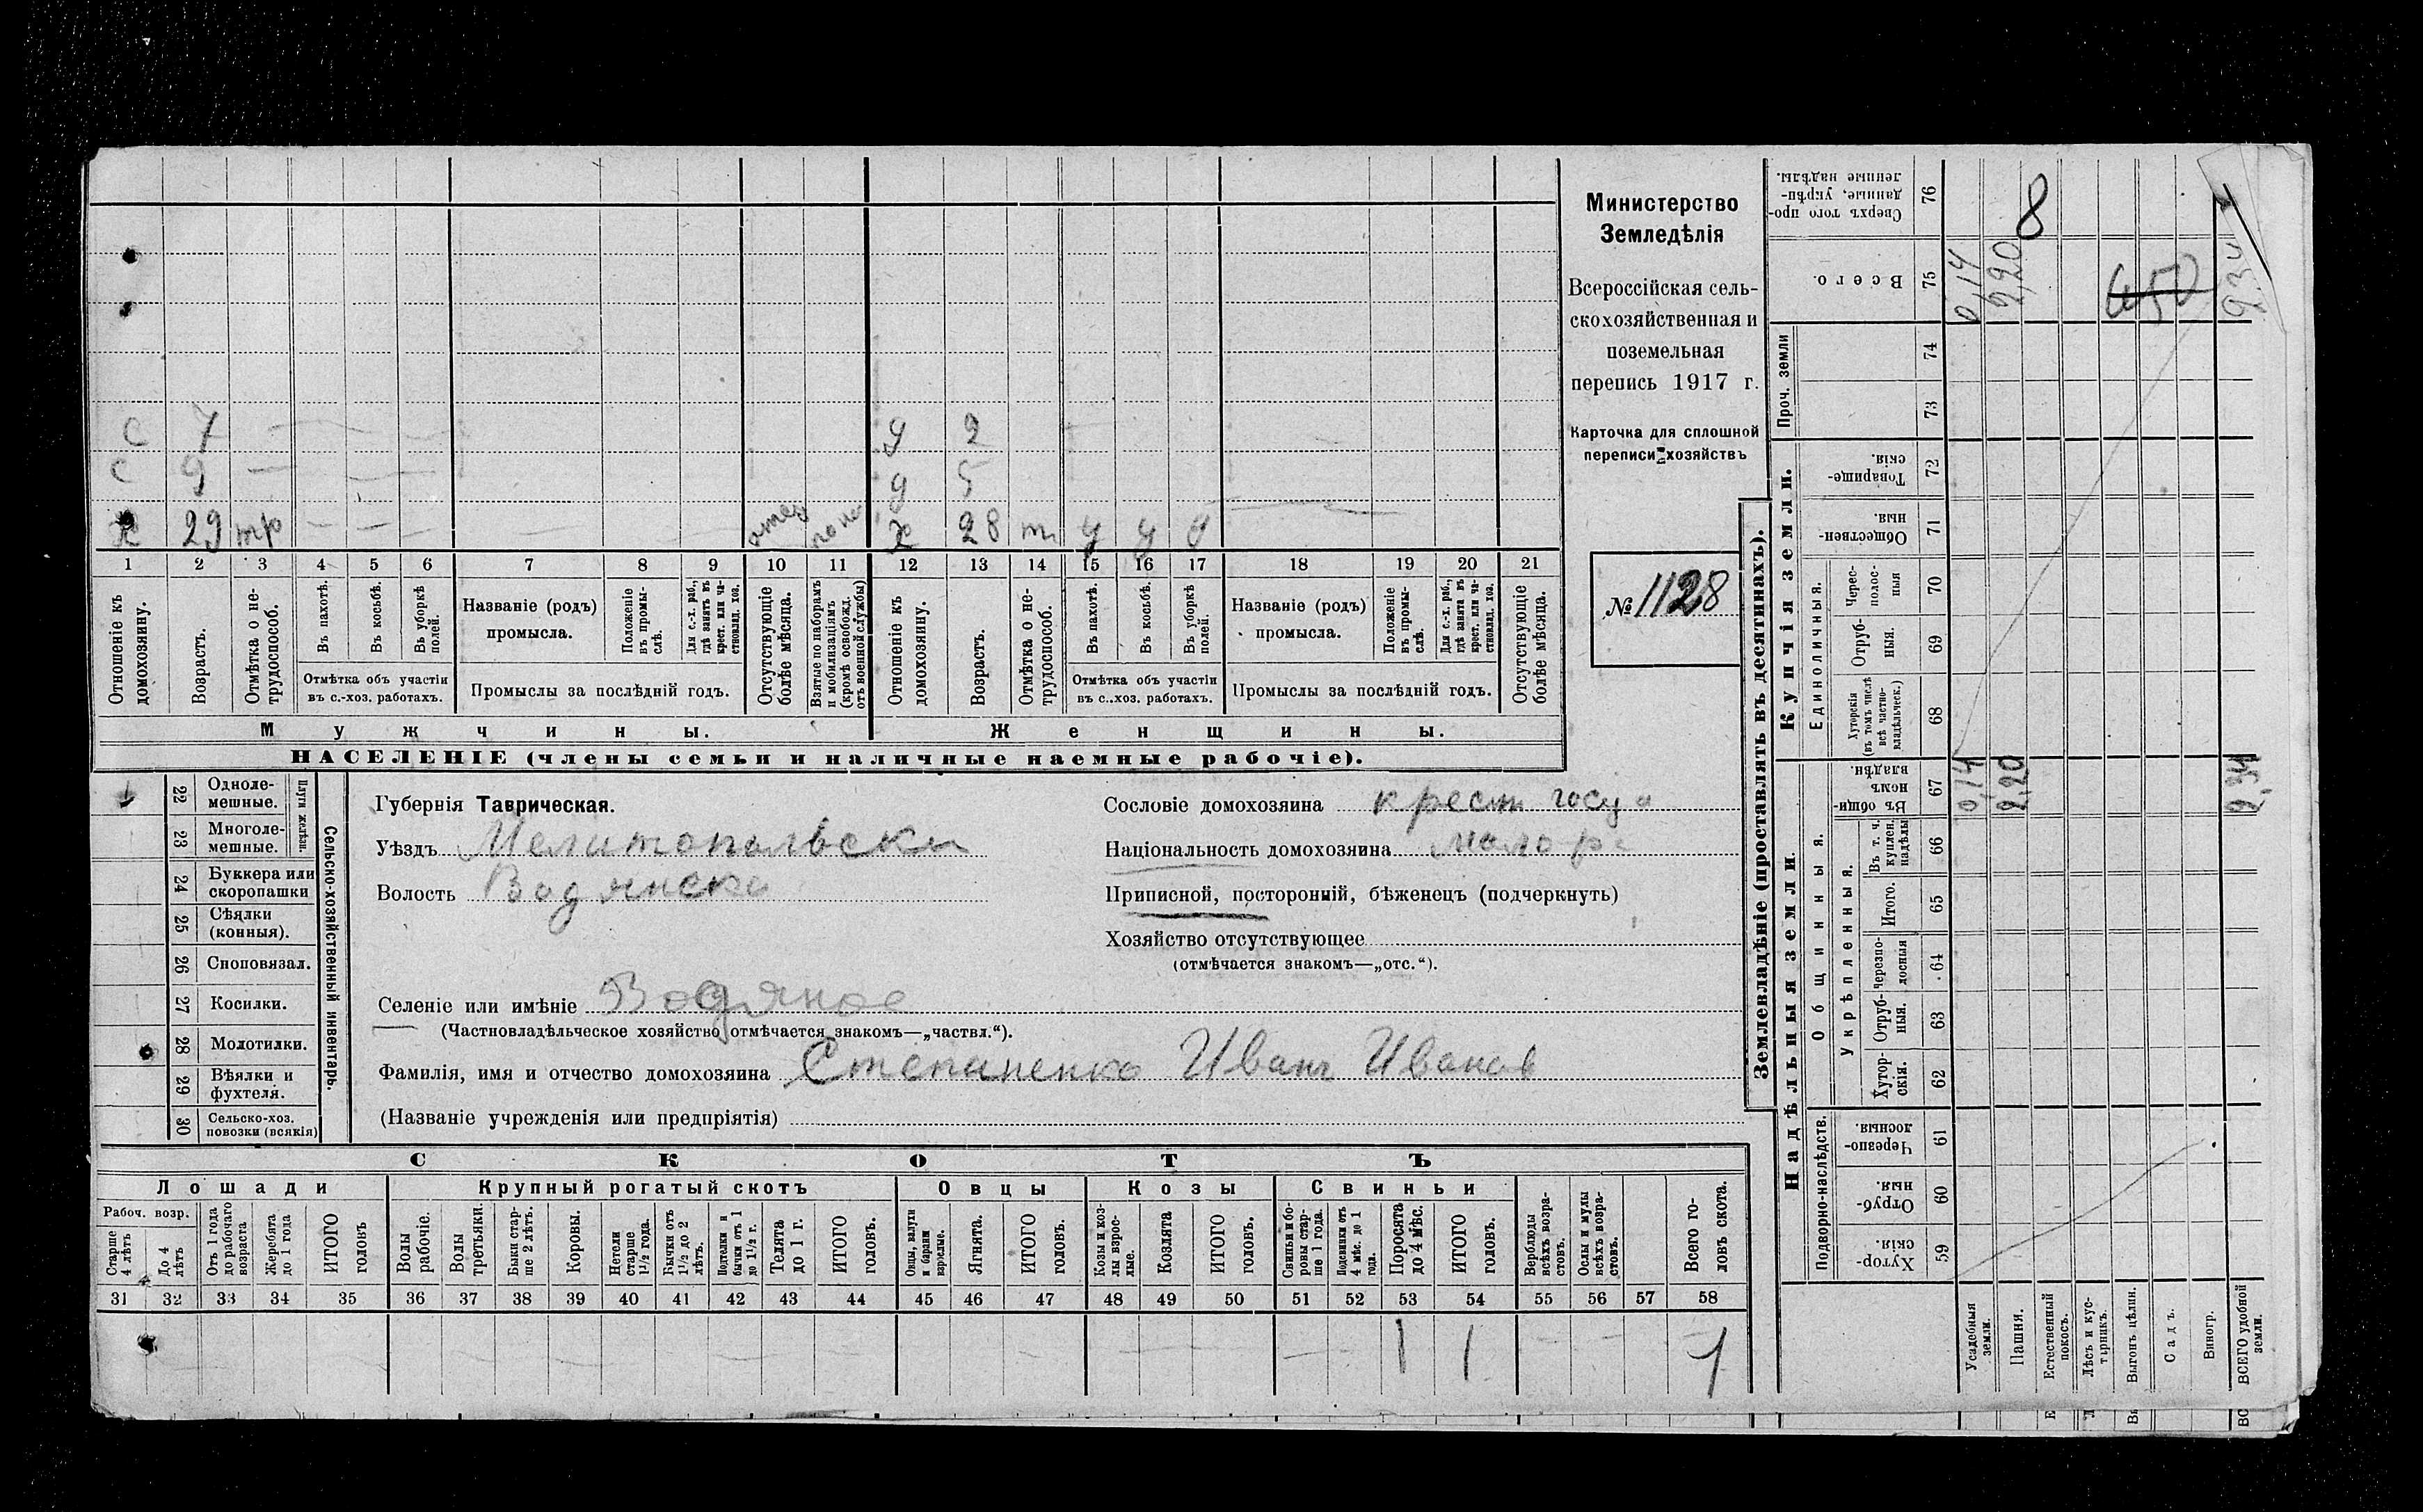 Министерство
Земледѣлія
Всероссійская сель-
скохозяйственная и
поземельная
перепись 1917 г.
Карточка для сплошной
переписи хозяйствъ
№ 1128
с 7 д 2
с 9 д 5
х 29 тр х 28 т у у у
1 2 3 4 5 6 7 8 9 10 11 12 13 14 15 16 17 18 19 20 21
Отношеніе къ домохозяину.
Возрастъ.
Отмѣтка о не-трудоспособ.
Въ пахотѣ.
Въ косьбѣ.
Въ уборкѣ полей.
Отмѣтка объ участіи
въ с.-хоз. работахъ.
Названіе (родъ)
промысла.
Положеніе въ промы-слѣ.
Для с.-х. раб., гдѣ занятъ въ крест. или ча-стновлад. хоз.
Промыслы за послѣдній годъ.
Отсутствующіе болѣе мѣсяца.
Взятые по наборамъ и мобилизаціямъ (кромѣ освобожд. отъ военной службы)
Отношеніе къ домохозяину.
Возрастъ.
Отмѣтка о не-трудоспособ.
Въ пахотѣ.
Въ косьбѣ.
Въ уборкѣ полей.
Отмѣтка объ участіи
въ с.-хоз. работахъ.
Названіе (родъ)
промысла.
Положеніе въ промы-слѣ.
Для с.-х. раб., гдѣ занята въ крест. или ча-стновлад. хоз.
Промыслы за послѣдній годъ.
Отсутствующіе болѣе мѣсяца.
Мужчины. Женщины.
НАСЕЛЕНІЕ (члены семьи и наличные наемные рабочіе).
Сельско-хозяйственный инвентарь.
Плуги желѣзн.
1 22 Одноле-мешные.
23 Многоле-мешные.
24 Буккера или скоропашки
25 Сѣялки (конныя).
26 Сноповязал.
27 Косилки.
28 Молотилки.
29 Вѣялки и фухтеля.
30 Сельско-хоз. повозки (всякія)
Губернія Таврическая.
Уѣздъ Мелитопольски
Волость Водянска
Селеніе или имѣніе Водяное
(Частновладѣльческое хозяйство отмѣчается знакомъ—„частвл.“).
Фамилія, имя и отчество домохозяина Степаненко Иванъ Иванов
(Названіе учрежденія или предпріятія)
Сословіе домохозяина крест госу
Національность домохозяина малор
Приписной, посторонній, бѣженецъ (подчеркнуть)
Хозяйство отсутствующее
(отмѣчается знакомъ—„отс.“).
СКОТЪ
Лошади Крупный рогатый скотъ Овцы Козы Свиньи
Рабоч. возр.
Старше 4 лѣтъ
До 4 лѣтъ
Отъ 1 года до рабочаго возраста
Жеребята до 1 года
ИТОГО головъ
Волы рабочіе.
Волы третьяки.
Быки стар-ше 2 лѣтъ.
Коровы.
Нетели старше 1½ года.
Бычки отъ 1½ до 2 лѣтъ.
Подтелки и бычки отъ 1 до 1½ г.
Телята до 1 г.
ИТОГО головъ.
Овцы, валухи и бараны взрослые.
Ягнята.
ИТОГО головъ.
Козы и коз-лы взрос-лые.
Козлята
ИТОГО головъ.
Свиньи и бо-ровы стар-ше 1 года.
Подсвинки отъ 4 мѣс. до 1 года.
Поросята до 4 мѣс.
ИТОГО головъ.
Верблюды всѣхъ возра-стовъ.
Ослы и мулы всѣхъ возра-стовъ.
Всего го-ловъ скота.
31 32 33 34 35 36 37 38 39 40 41 42 43 44 45 46 47 48 49 50 51 52 53 54 55 56 57 58
1 1 1
Землевладѣніе (проставлять въ десятинахъ).
Сверхъ того про-данные, укрѣп-ленные надѣлы. 76
8
Всего. 75
0,14
2,20
450
2,34
Проч. земли
74
73
Купчія земли.
Товарище-скія. 72
Обществен-ныя. 71
Единоличныя.
Черес-полос-ныя 70
Отруб-ныя. 69
Хуторскія (въ томъ числѣ всѣ частно-владѣльческ.) 68
Надѣльныя земли.
Общинныя.
Въ общи-номъ владѣн. 67
0,14
2,20
2,34
Укрѣпленныя.
Въ т. ч. куплен. надѣлы 66
Итого. 65
Черезпо-лосныя 64
Отруб-ныя. 63
Хутор-скія. 62
Подворно-наслѣдств.
Черезпо-лосныя. 61
Отруб-ныя. 60
Хутор-скія. 59
Усадебныя земли.
Пашня.
Естественный покосъ.
Лѣсъ и кус-тарникъ.
Выгонъ цѣлин.
Садъ.
Виногр.
ВСЕГО удобной земли.